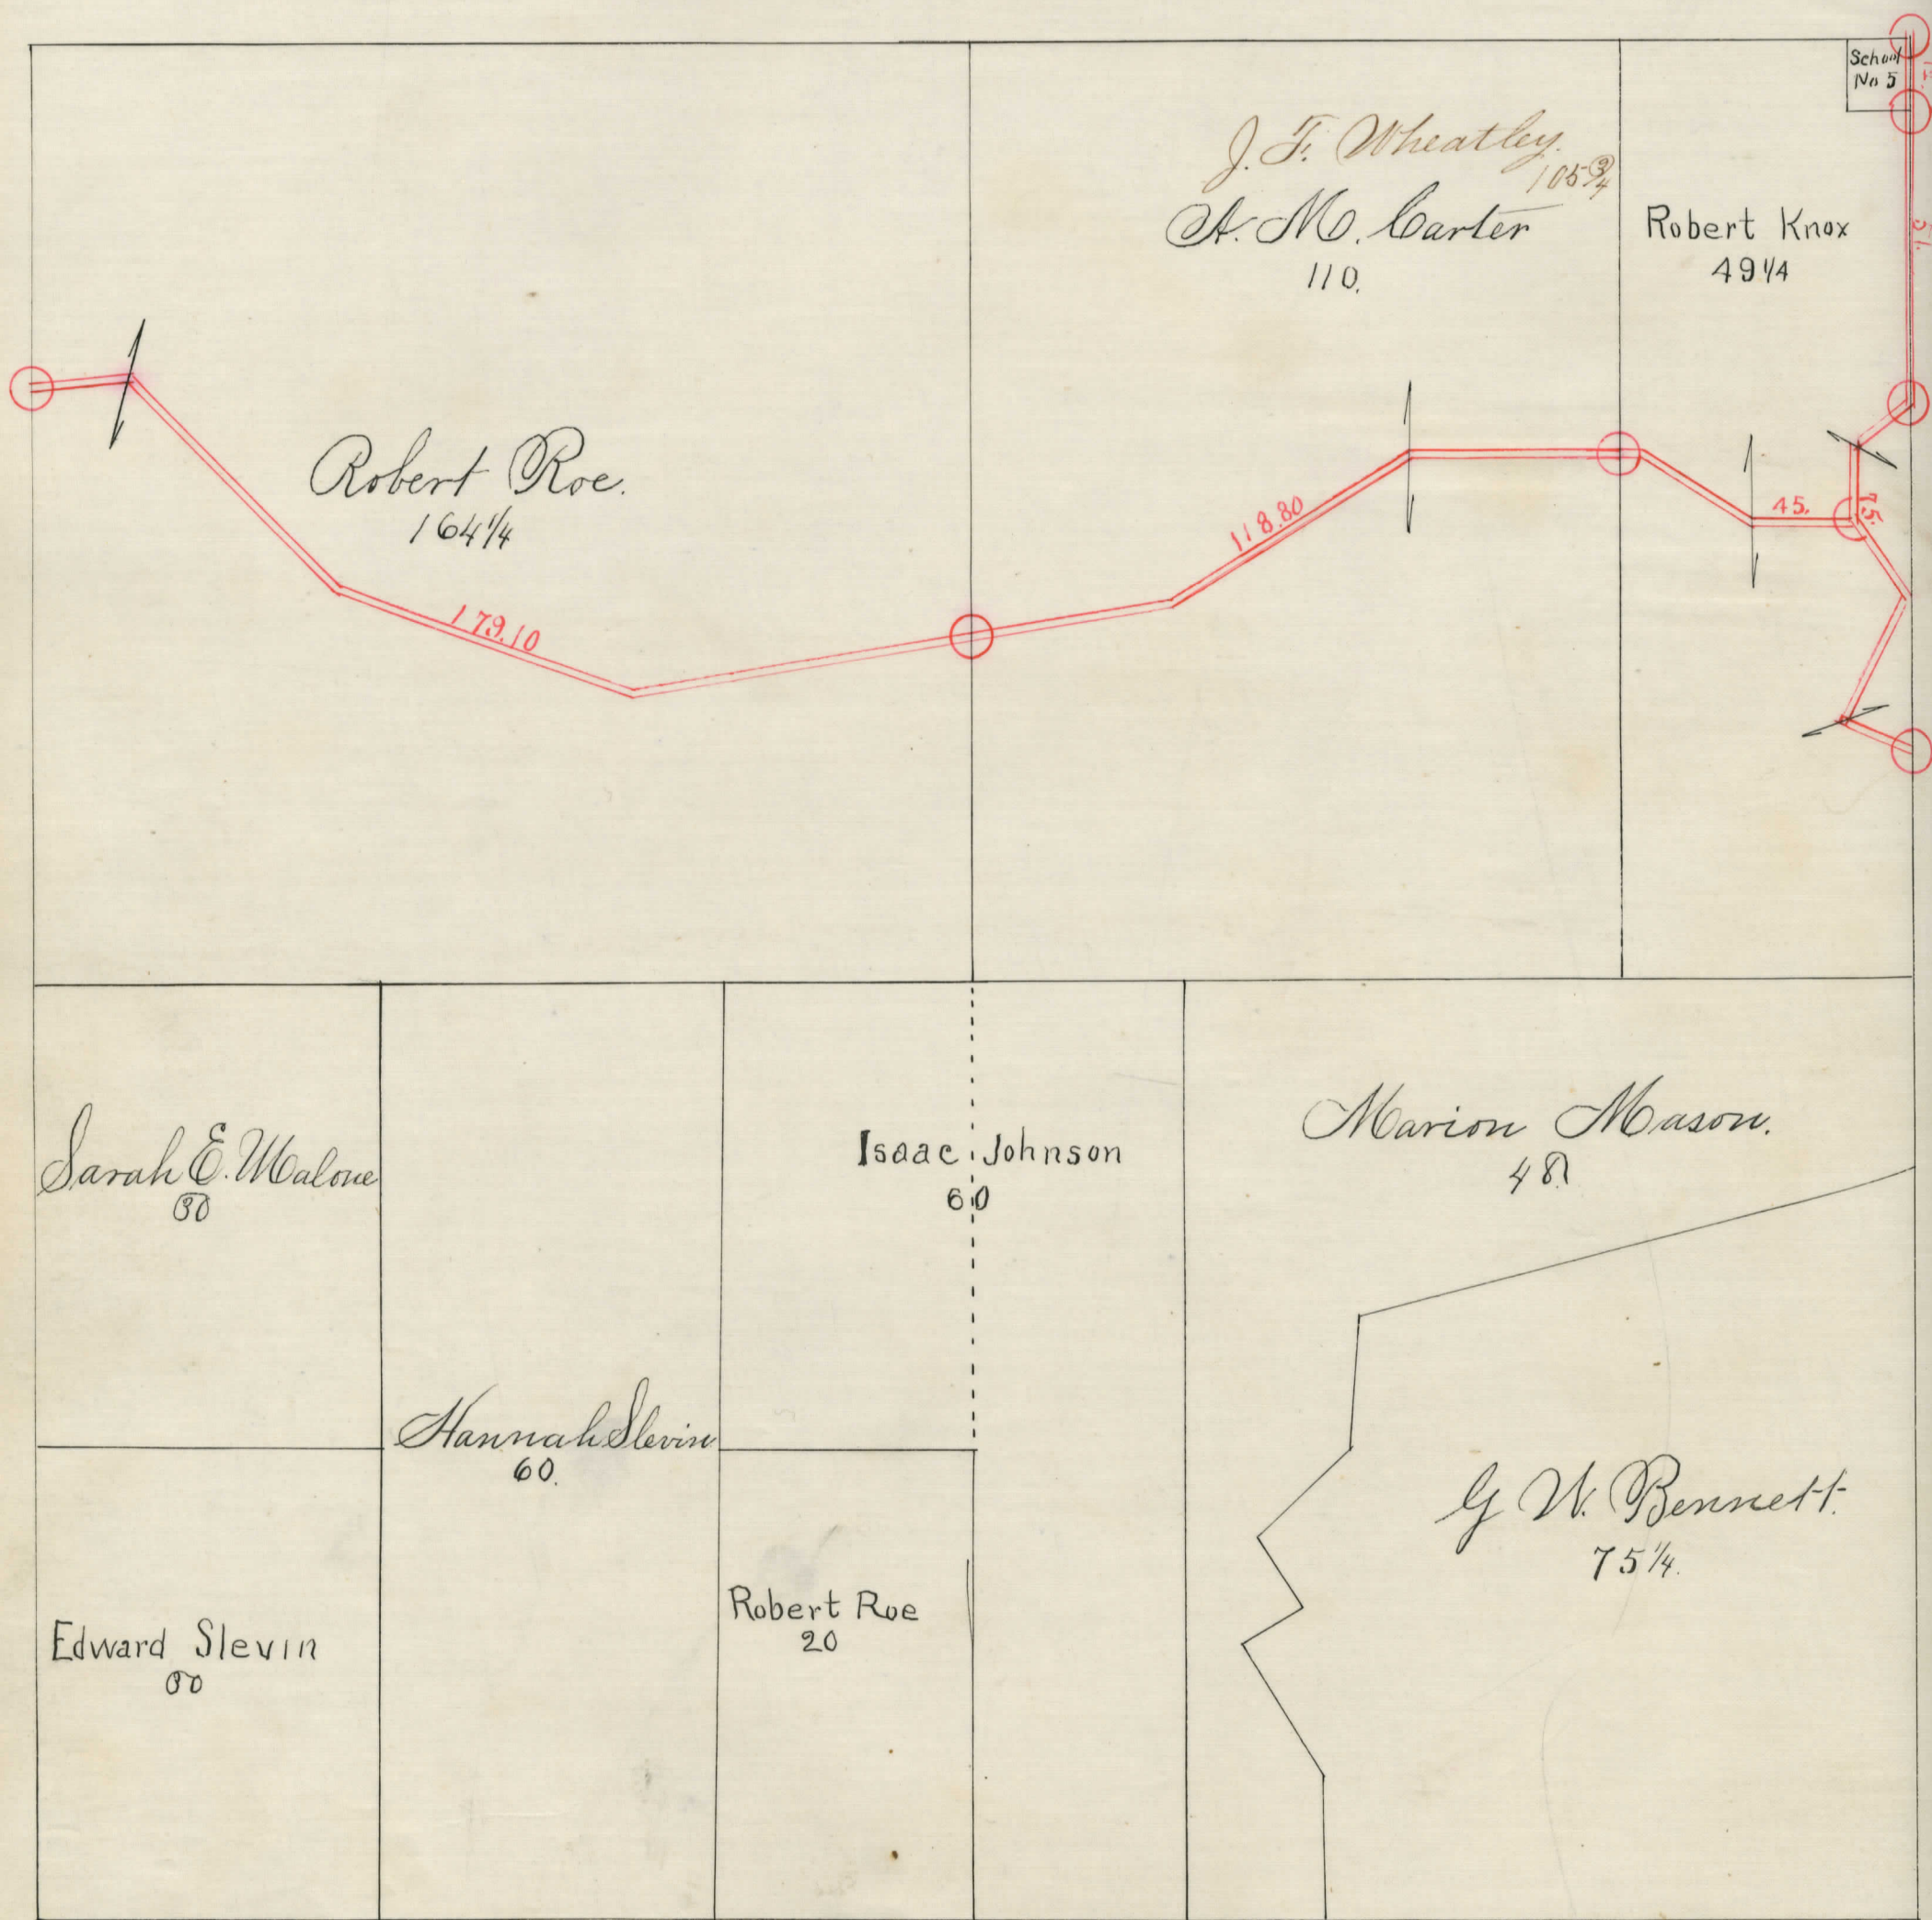 School
No 5
J. F. Wheatley.
105 3/4
A. M. Carter
110.
Robert Knox
49 1/4
51.
Robert Roe.
164 1/4
179.10
118.80
45.
75.
Sarah E. Malone
30
Isaac Johnson
60
Marion Mason.
48
Hannah Slevin
60.
G W. Bennett.
75 1/4.
Robert Roe
20
Edward Slevin